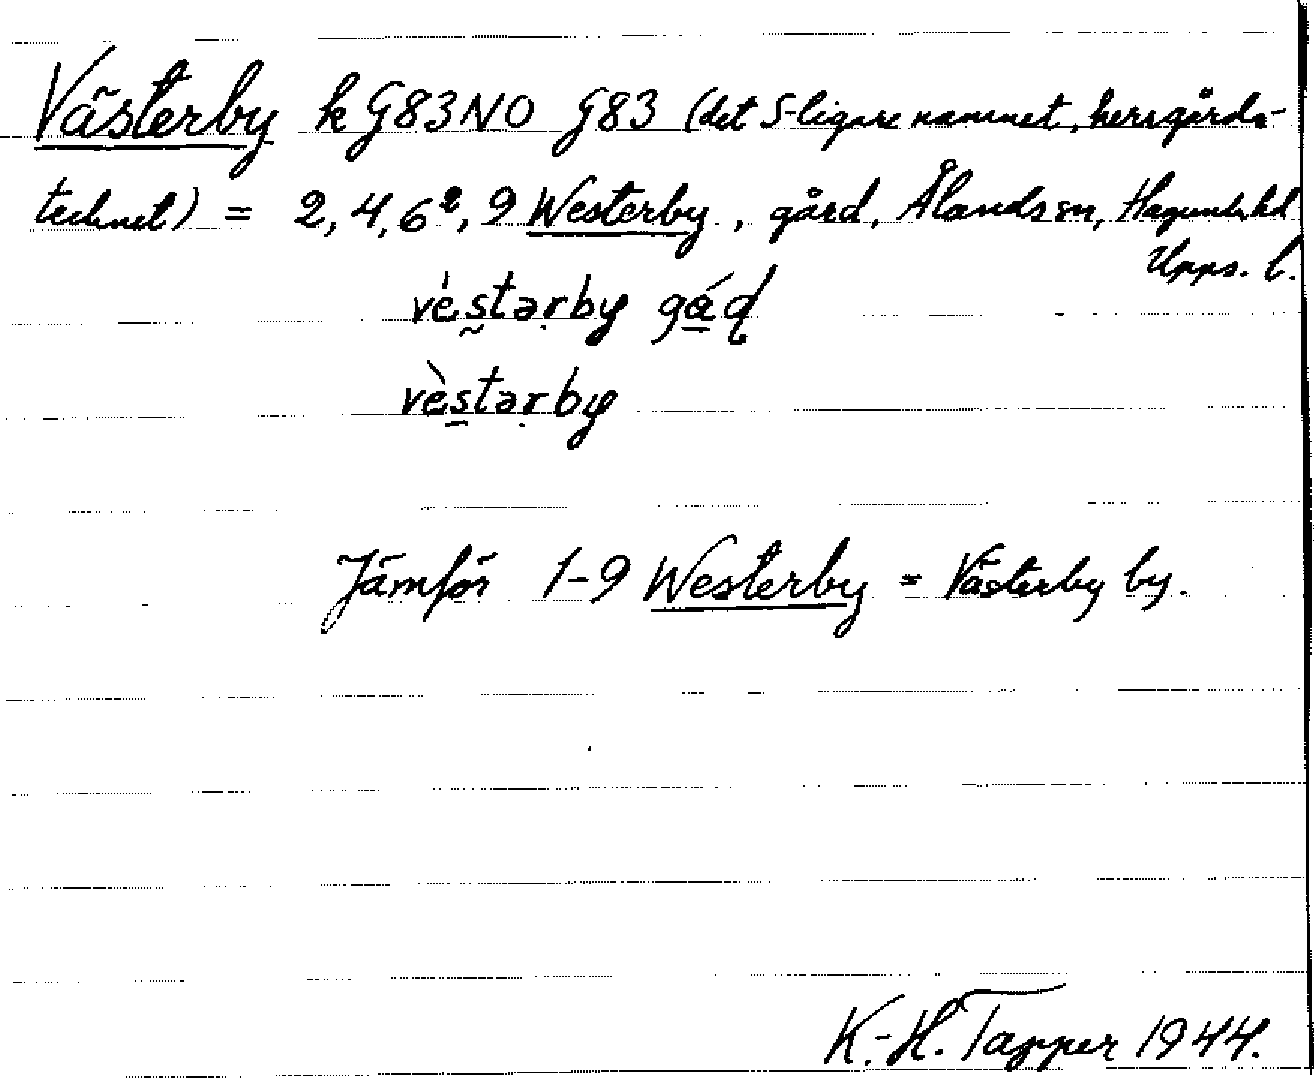 Västerby k G83NO G83 (det S-ligare namnet, herrgårds-
tecknet) = 2, 4, 6², 9 Westerby, gård, Ålands sn, Hagunda hd
Upps. l.
vèstərby gá̱ɖ
vèstərby
Jämför 1-9 Westerby = Västerby by.
K.-H. Tapper 1944.